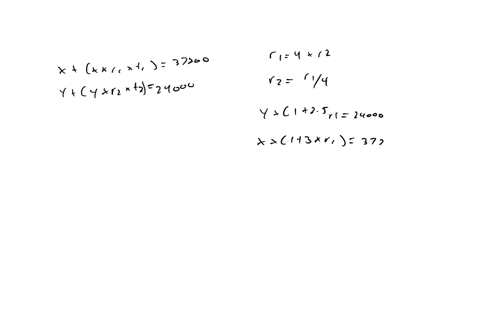 x + (x × r1 × t1) = 37200
y + (y × r2 × t2) = 24000
r1 = 4 × r2
r2 = r1/4
y × (1 + 2.5 r1 = 24000
x × (1 + 3 × r1) = 372